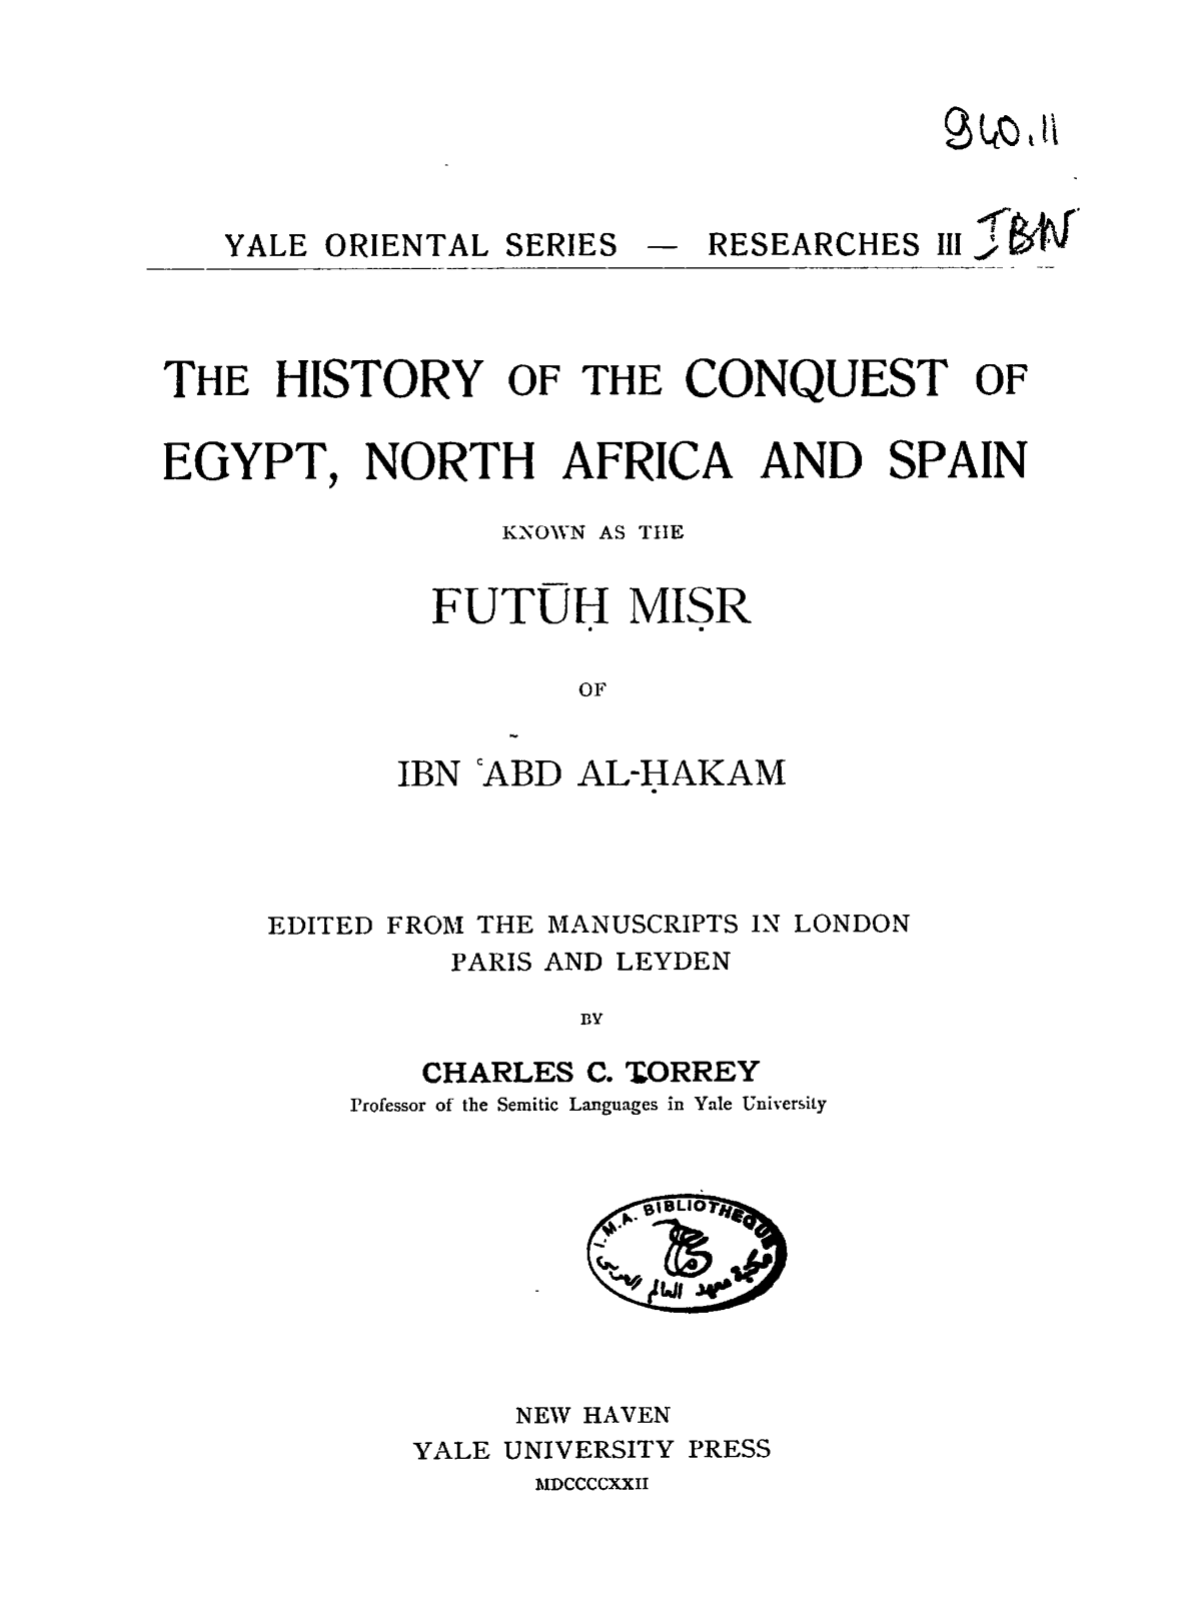 940.11
YALE ORIENTAL SERIES — RESEARCHES III IBN
THE HISTORY OF THE CONQUEST OF
EGYPT, NORTH AFRICA AND SPAIN
KNOWN AS THE
FUTŪḤ MIṢR
OF
IBN ʿABD AL-ḤAKAM
EDITED FROM THE MANUSCRIPTS IN LONDON
PARIS AND LEYDEN
BY
CHARLES C. TORREY
Professor of the Semitic Languages in Yale University
I.M.A. BIBLIOTHEQUE
مكتبة معهد العالم العربي
NEW HAVEN
YALE UNIVERSITY PRESS
MDCCCCXXII